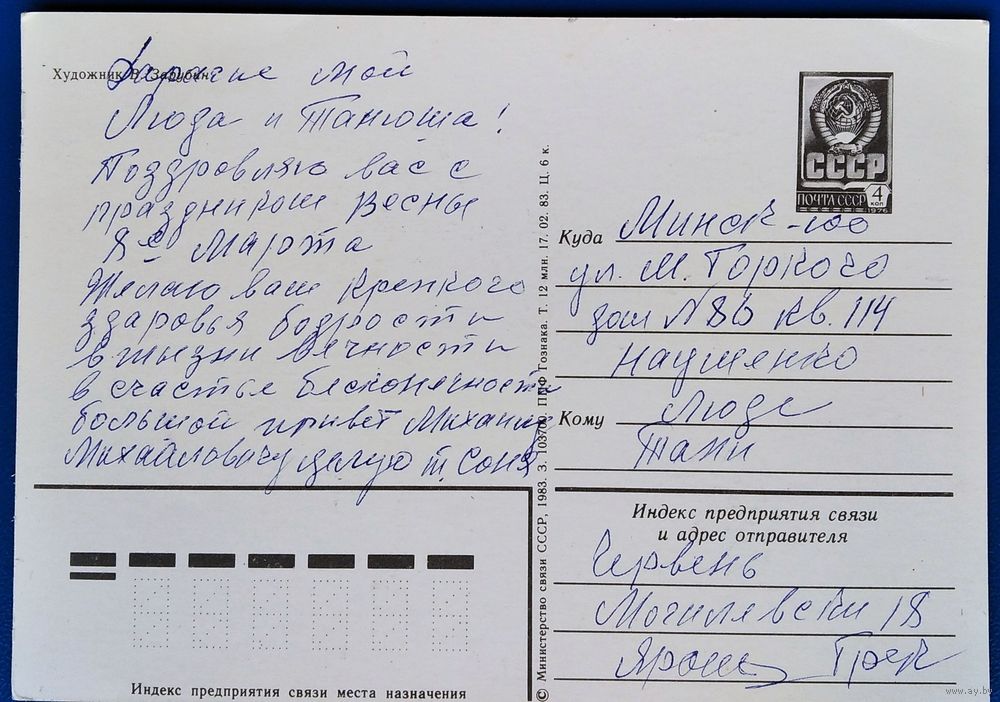 Художник В. Зарубин
Дарагие мои
Люда и Танюша!
Поздровляю вас с
праздником Весны
8 е Марта
Желаю вам крепкого
здаровья бодрости
в жизни вечности
в счастье бесконечности
большой привет Михаилу
Михайловичу целую т. Соня
СССР
ПОЧТА СССР
4
КОП
1976
Куда Минск-100
ул. М. Горкого
дом N 86 кв. 114
Науменко
Кому Люде
Тани
Индекс предприятия связи
и адрес отправителя
Червень
Могилевски 18
Ярош
Индекс предприятия связи места назначения
© Министерство связи СССР, 1983. З. 103700. ППФ Гознака. Т. 12 млн. 17. 02. 83. Ц. 6 к.
www.ay.by